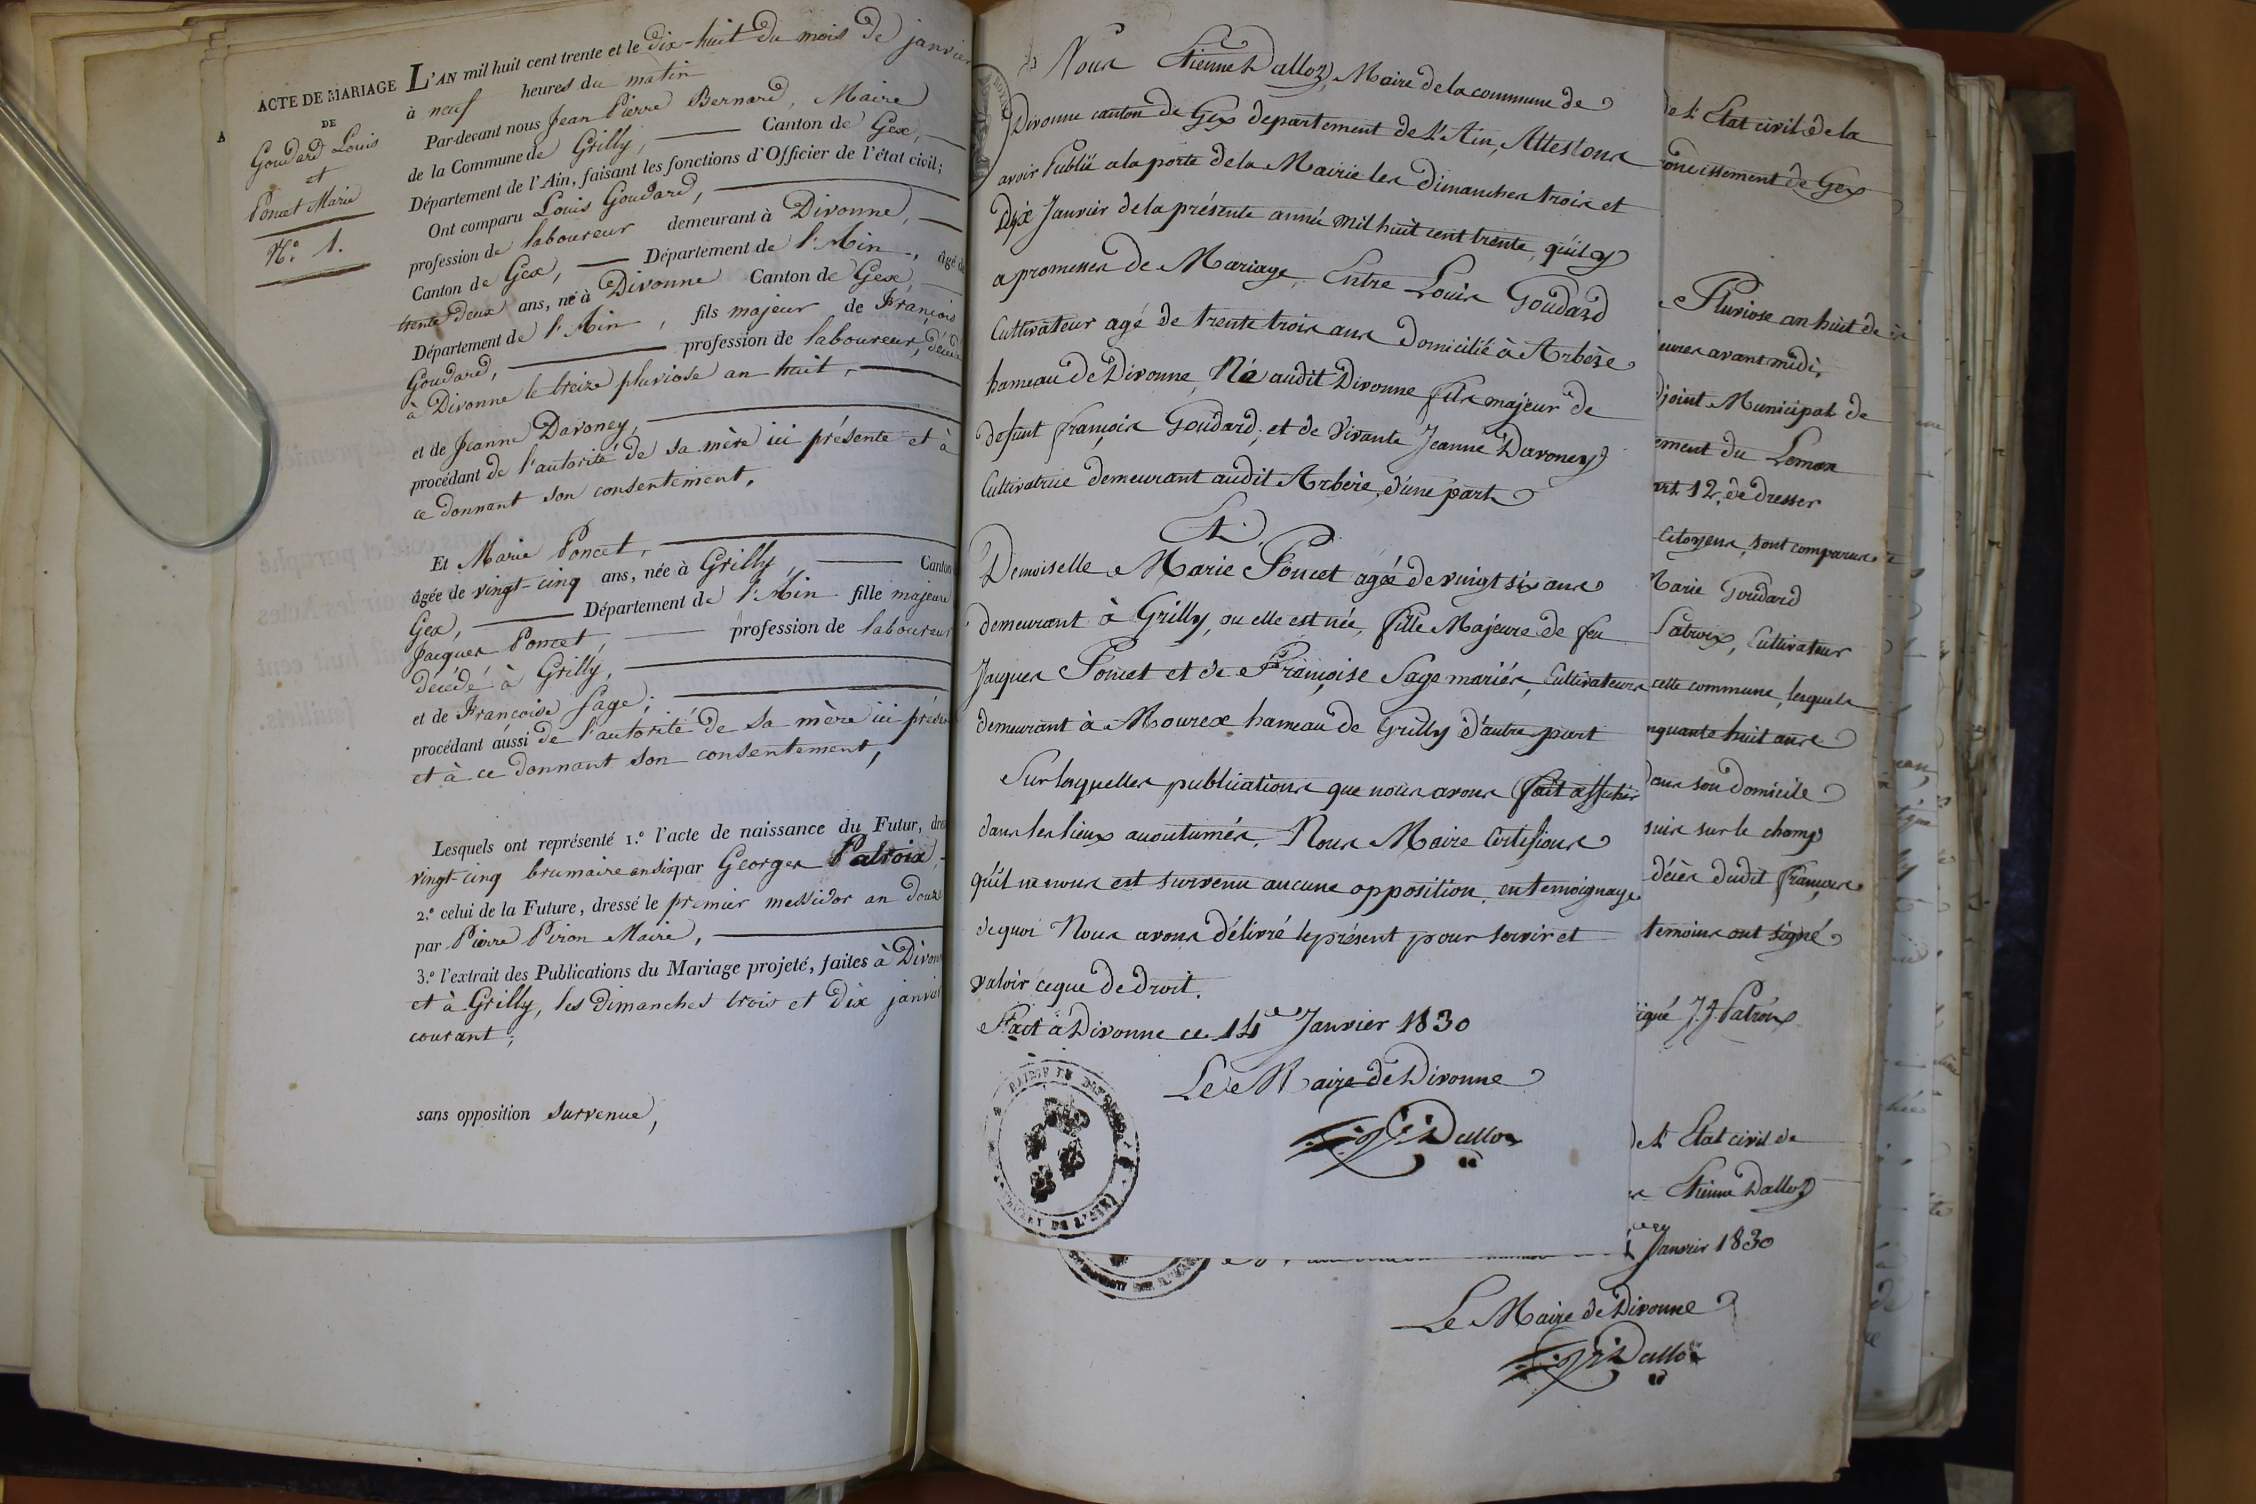 ACTE DE MARIAGE
DE
Goudard Louis
et
Poncet Marie
N.o 1.
A
L'AN mil huit cent trente et le dix-huit du mois de janvier
à neuf heures du matin
Par-devant nous Jean Pierre Bernard, Maire
de la Commune de Grilly, Canton de Gex,
Département de l'Ain, faisant les fonctions d'Officier de l'état civil;
Ont comparu Louis Goudard,
profession de laboureur demeurant à Divonne,
Canton de Gex, Département de l'Ain, âgé de
trente deux ans, né à Divonne Canton de Gex,
Département de l'Ain, fils majeur de François
Goudard, profession de laboureur, décédé
à Divonne le treize pluviose an huit,
et de Jeanne Davoney,
procédant de l'autorité de sa mère ici présente et à
ce donnant son consentement,
Et Marie Poncet,
âgée de vingt-cinq ans, née à Grilly, Canton
Gex, Département de l'Ain fille majeure
Jacques Poncet, profession de laboureur
décédé à Grilly,
et de Françoise Sage;
procédant aussi de l'autorité de sa mère ici
et à ce donnant son consentement,
Lesquels ont représenté 1.o l'acte de naissance du Futur,
vingt-cinq brumaire an six par Georges Patroix,
2.o celui de la Future, dressé le premier messidor an douze
par Pierre Piron Maire,
3.o l'extrait des Publications du Mariage projeté, faites à Divonne
et à Grilly, les dimanches trois et dix janvier
courant;
sans opposition survenue,
Nous Etienne Dalloz, Maire de la commune de
Divonne canton de Gex departement de l'Ain, Attestons
avoir Publié a la porte de la Mairie les dimanches trois et
Dix Janvier de la présente année mil huit cent trente, qu'il y
a promesses de Mariage, Entre Louis Goudard
Cultivateur agé de trente trois ans Domicilié à Arbère
hameau de Divonne, Né audit Divonne fils majeur de
defunt françois Goudard, et de Vivante Jeanne Davoney
Cultivatrice demeurant audit Arbère, d'une part
Et.
Demoiselle Marie Poncet agée de vingt six ans
demeurant à Grilly, ou elle est née, fille Majeure de feu
Jacques Poncet et de Françoise Sage mariés, Cultivateurs
demeurant à Mourex hameau de Grilly d'autre part
Sur lesquelles publications que nous avons fait afficher
dans les lieux accoutumés, Nous Maire Certifions
qu'il ne nous est survenu aucune opposition, en temoignage
de quoi Nous avons délivré le présent pour servir et
valoir ce que de droit.
Fait à Divonne ce 14 Janvier 1830
Le Maire de Divonne
Dalloz
de l'Etat civil de la
ondissement de Gex
Pluviose an huit de
eures avant midi,
djoint Municipal de
ement du Leman
art. 12, de dresser
Citoyens, sont comparus
Marie Goudard
Patroix, Cultivateur
cette commune, lesquels
nquante huit ans
dans son domicile
suis sur le champ
décès dudit françois
temoins ont signé
igné J. J. Patroix
de l'Etat civil de
Etienne Dalloz
Janvier 1830
Le Maire de Divonne
Dalloz